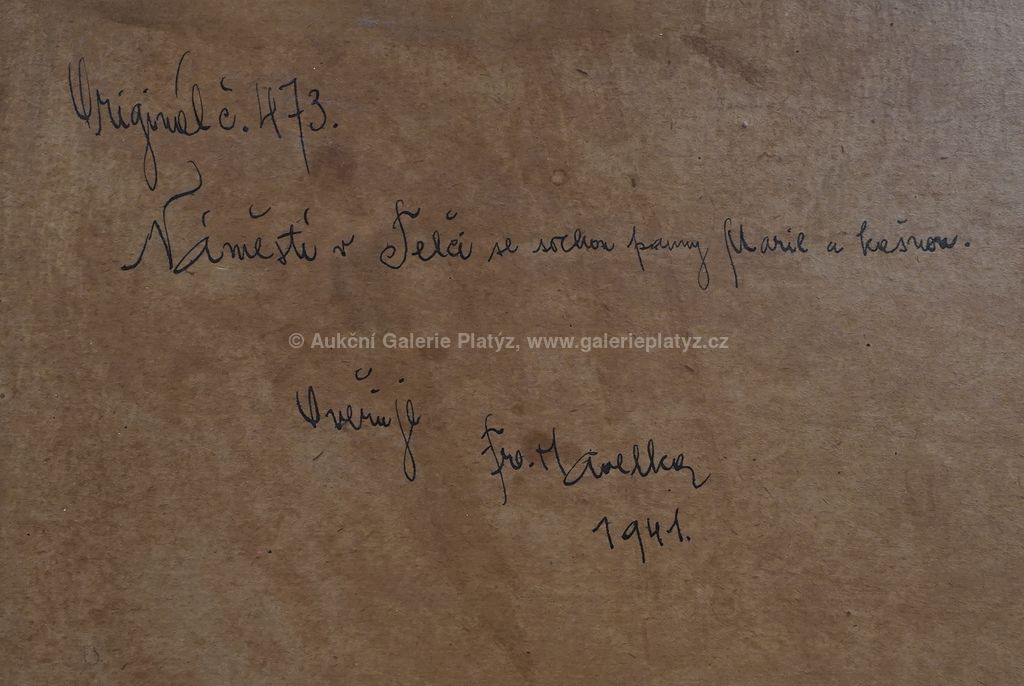 Originál č. 473.
Náměstí v Telči se sochou panny Marie a kašnou.
© Aukční Galerie Platýz, www.galerieplatyz.cz
Ověřuje
Fr. Havelka
1941.